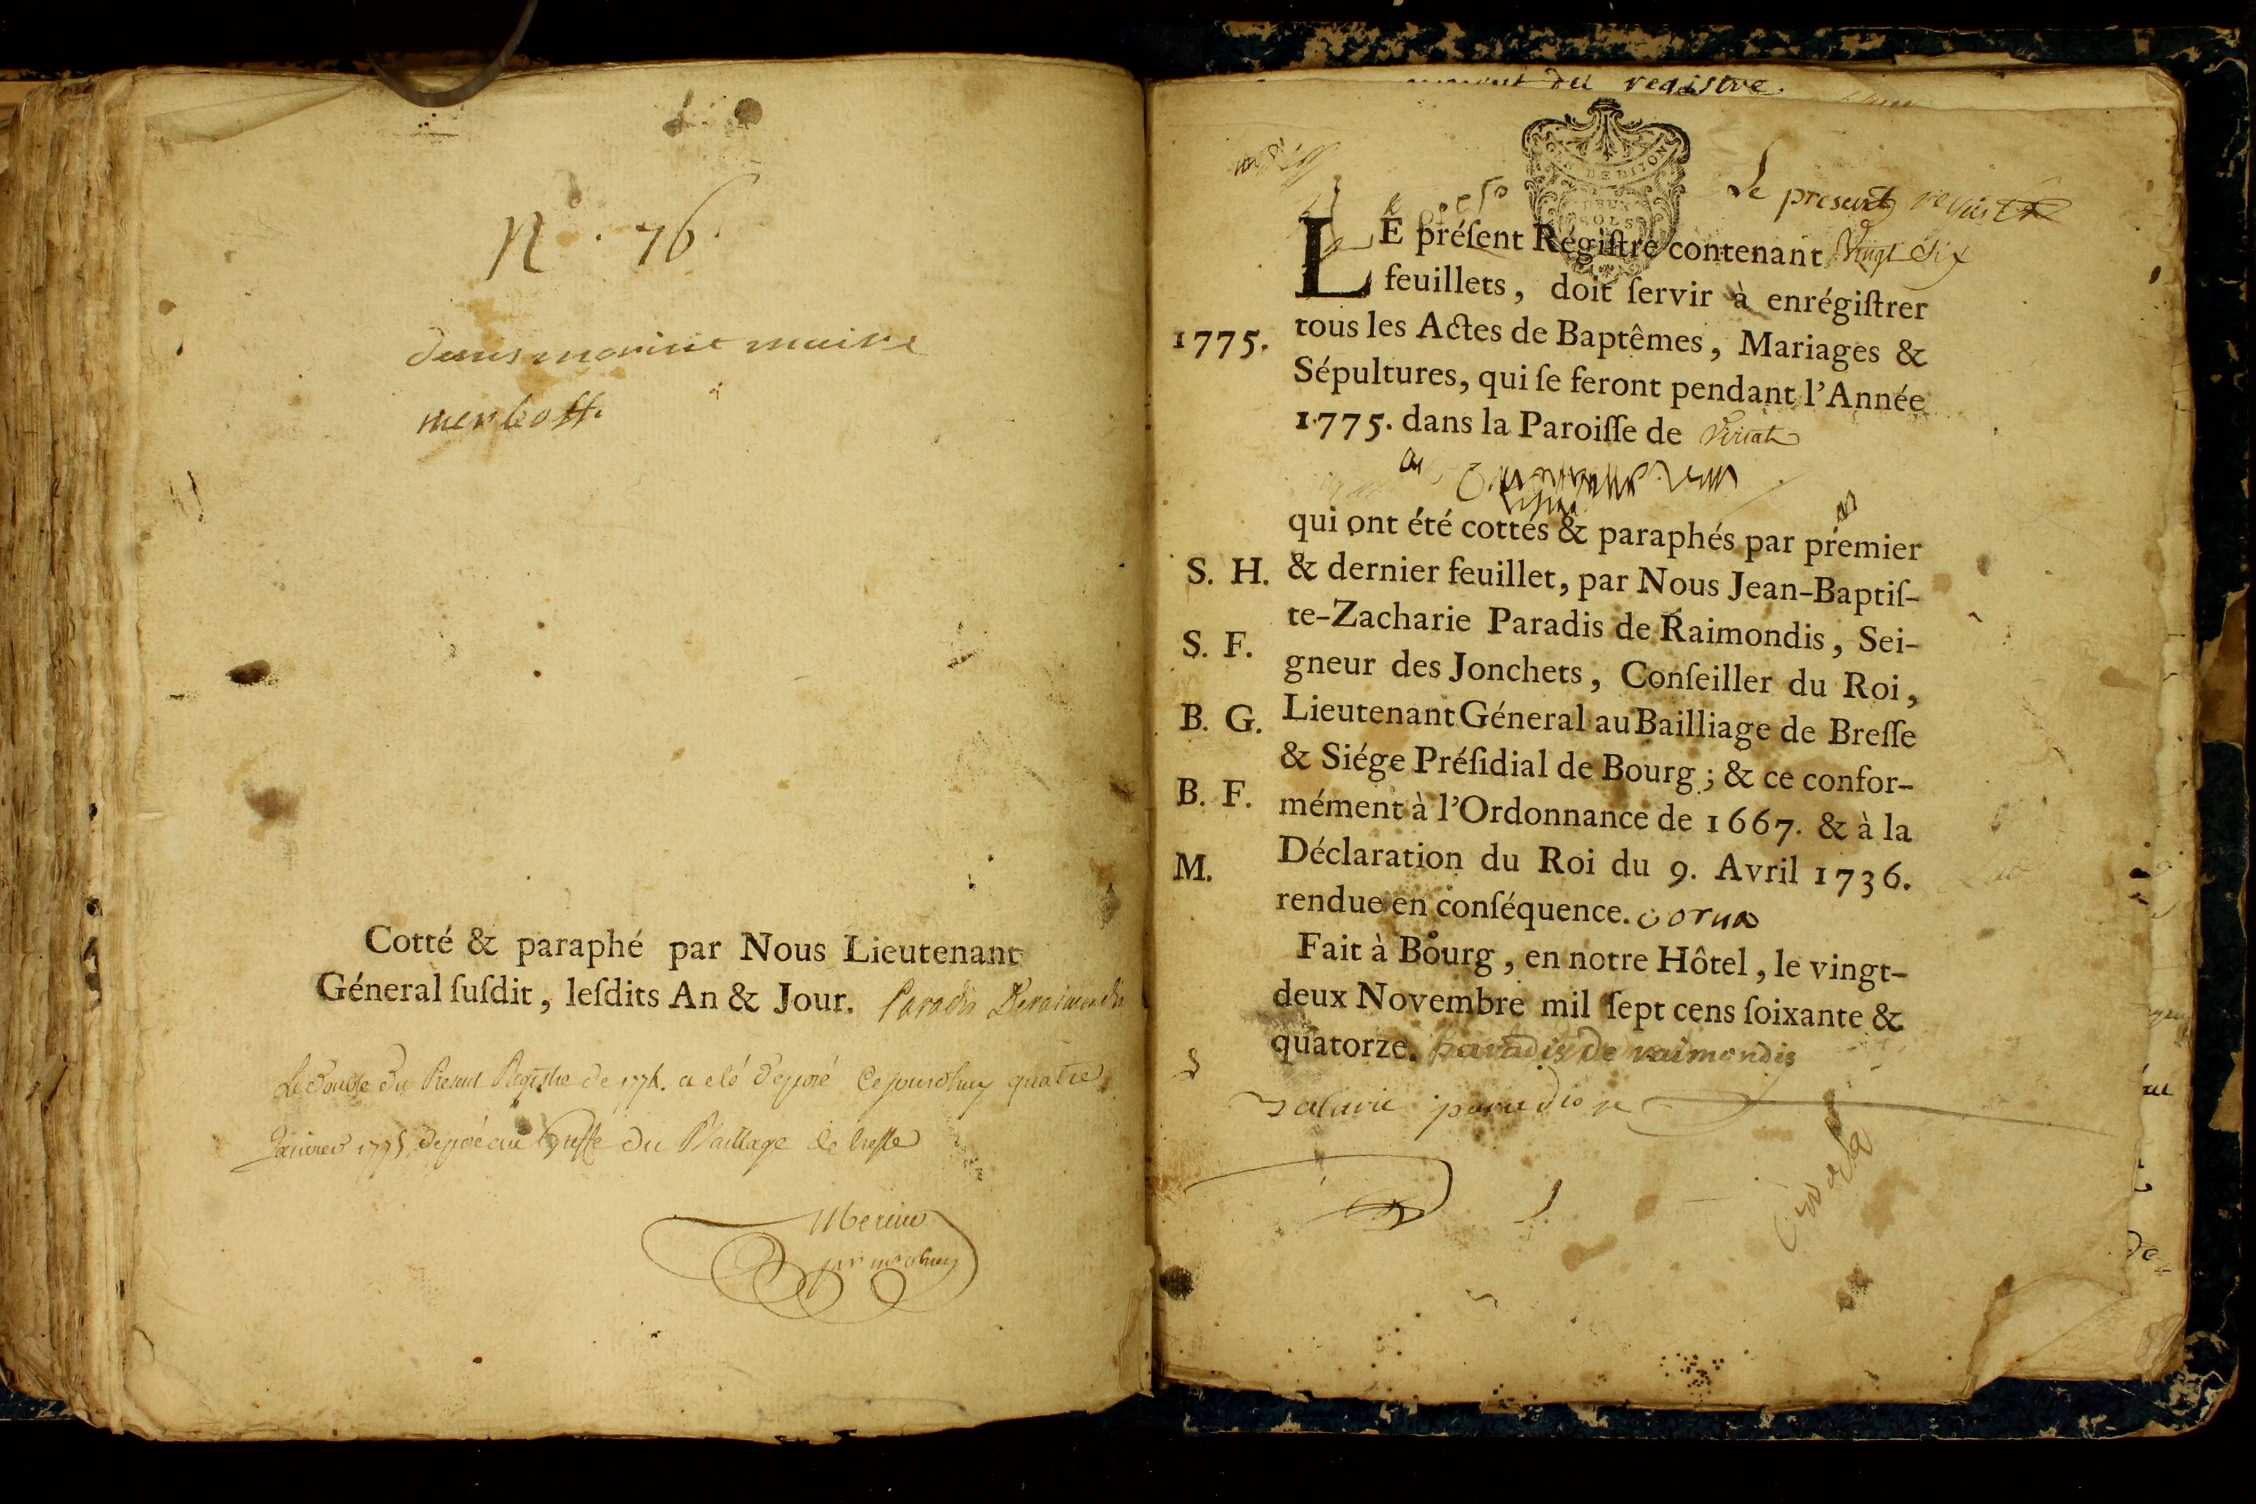 N.° 76.
merleoff.
Cotté & paraphé par Nous Lieutenant
Géneral ſuſdit, leſdits An & Jour. Paradis Deraimondis
Le Double du Présent Registre de 1774. a eté déposé Cejourdhuy quatre
Janvier 1775 déposé au Greffe du Bailliage de bresse
du registre.
Le present
LE préſent Régiſtre contenant Vingt Six
feuillets, doit ſervir à enrégiſtrer
1775. tous les Actes de Baptêmes, Mariages &
Sépultures, qui ſe feront pendant l'Année
1775. dans la Paroiſſe de Viriat
qui ont été cottés & paraphés par premier
S. H. & dernier feuillet, par Nous Jean-Baptiſ-
te-Zacharie Paradis de Raimondis, Sei-
S. F. gneur des Jonchets, Conſeiller du Roi,
B. G. Lieutenant Géneral au Bailliage de Breſſe
& Siége Préſidial de Bourg; & ce confor-
B. F. mément à l'Ordonnance de 1667. & à la
M. Déclaration du Roi du 9. Avril 1736.
rendue en conſéquence.
Fait à Bourg, en notre Hôtel, le vingt-
deux Novembre mil ſept cens ſoixante &
quatorze. paradis de raimondis